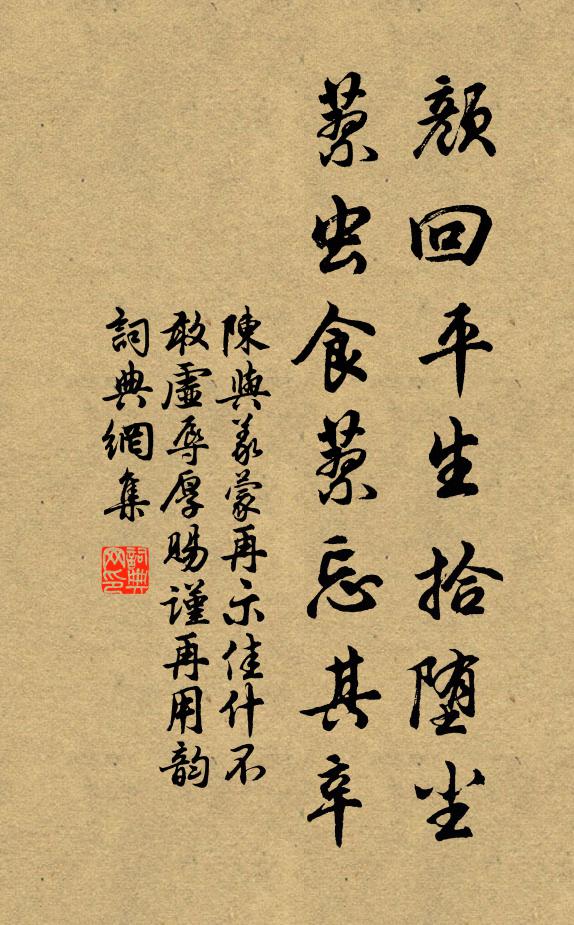 顏回平生拾堕尘
蓼虫食蓼忘其辛
陳與義蒙再示佳什不
敢虛辱厚賜謹再用韵
詞典網集
詞典
网印